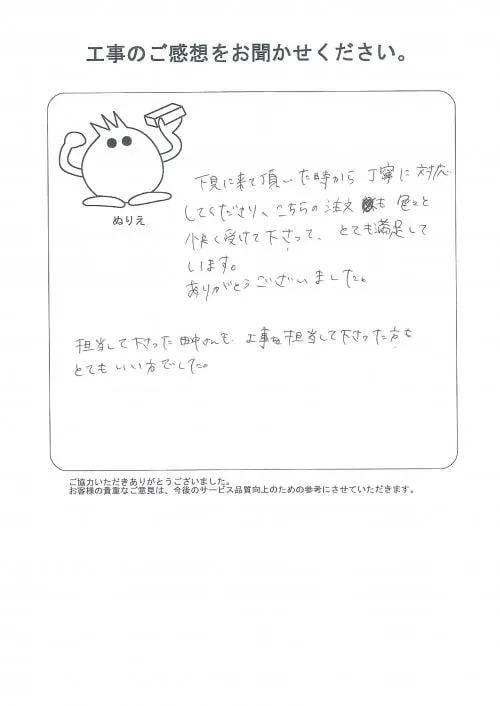 工事のご感想をお聞かせください。
ぬりえ
下見に来て頂いた時から 丁寧に対応
してくださり、こちらの注文も 色々と
快く受けて下さって、とても満足して
います。
ありがとうございました。
担当して下さった田中さんも、工事を担当して下さった方も
とてもいい方でした。
ご協力いただきありがとうございました。
お客様の貴重なご意見は、今後のサービス品質向上のための参考にさせていただきます。